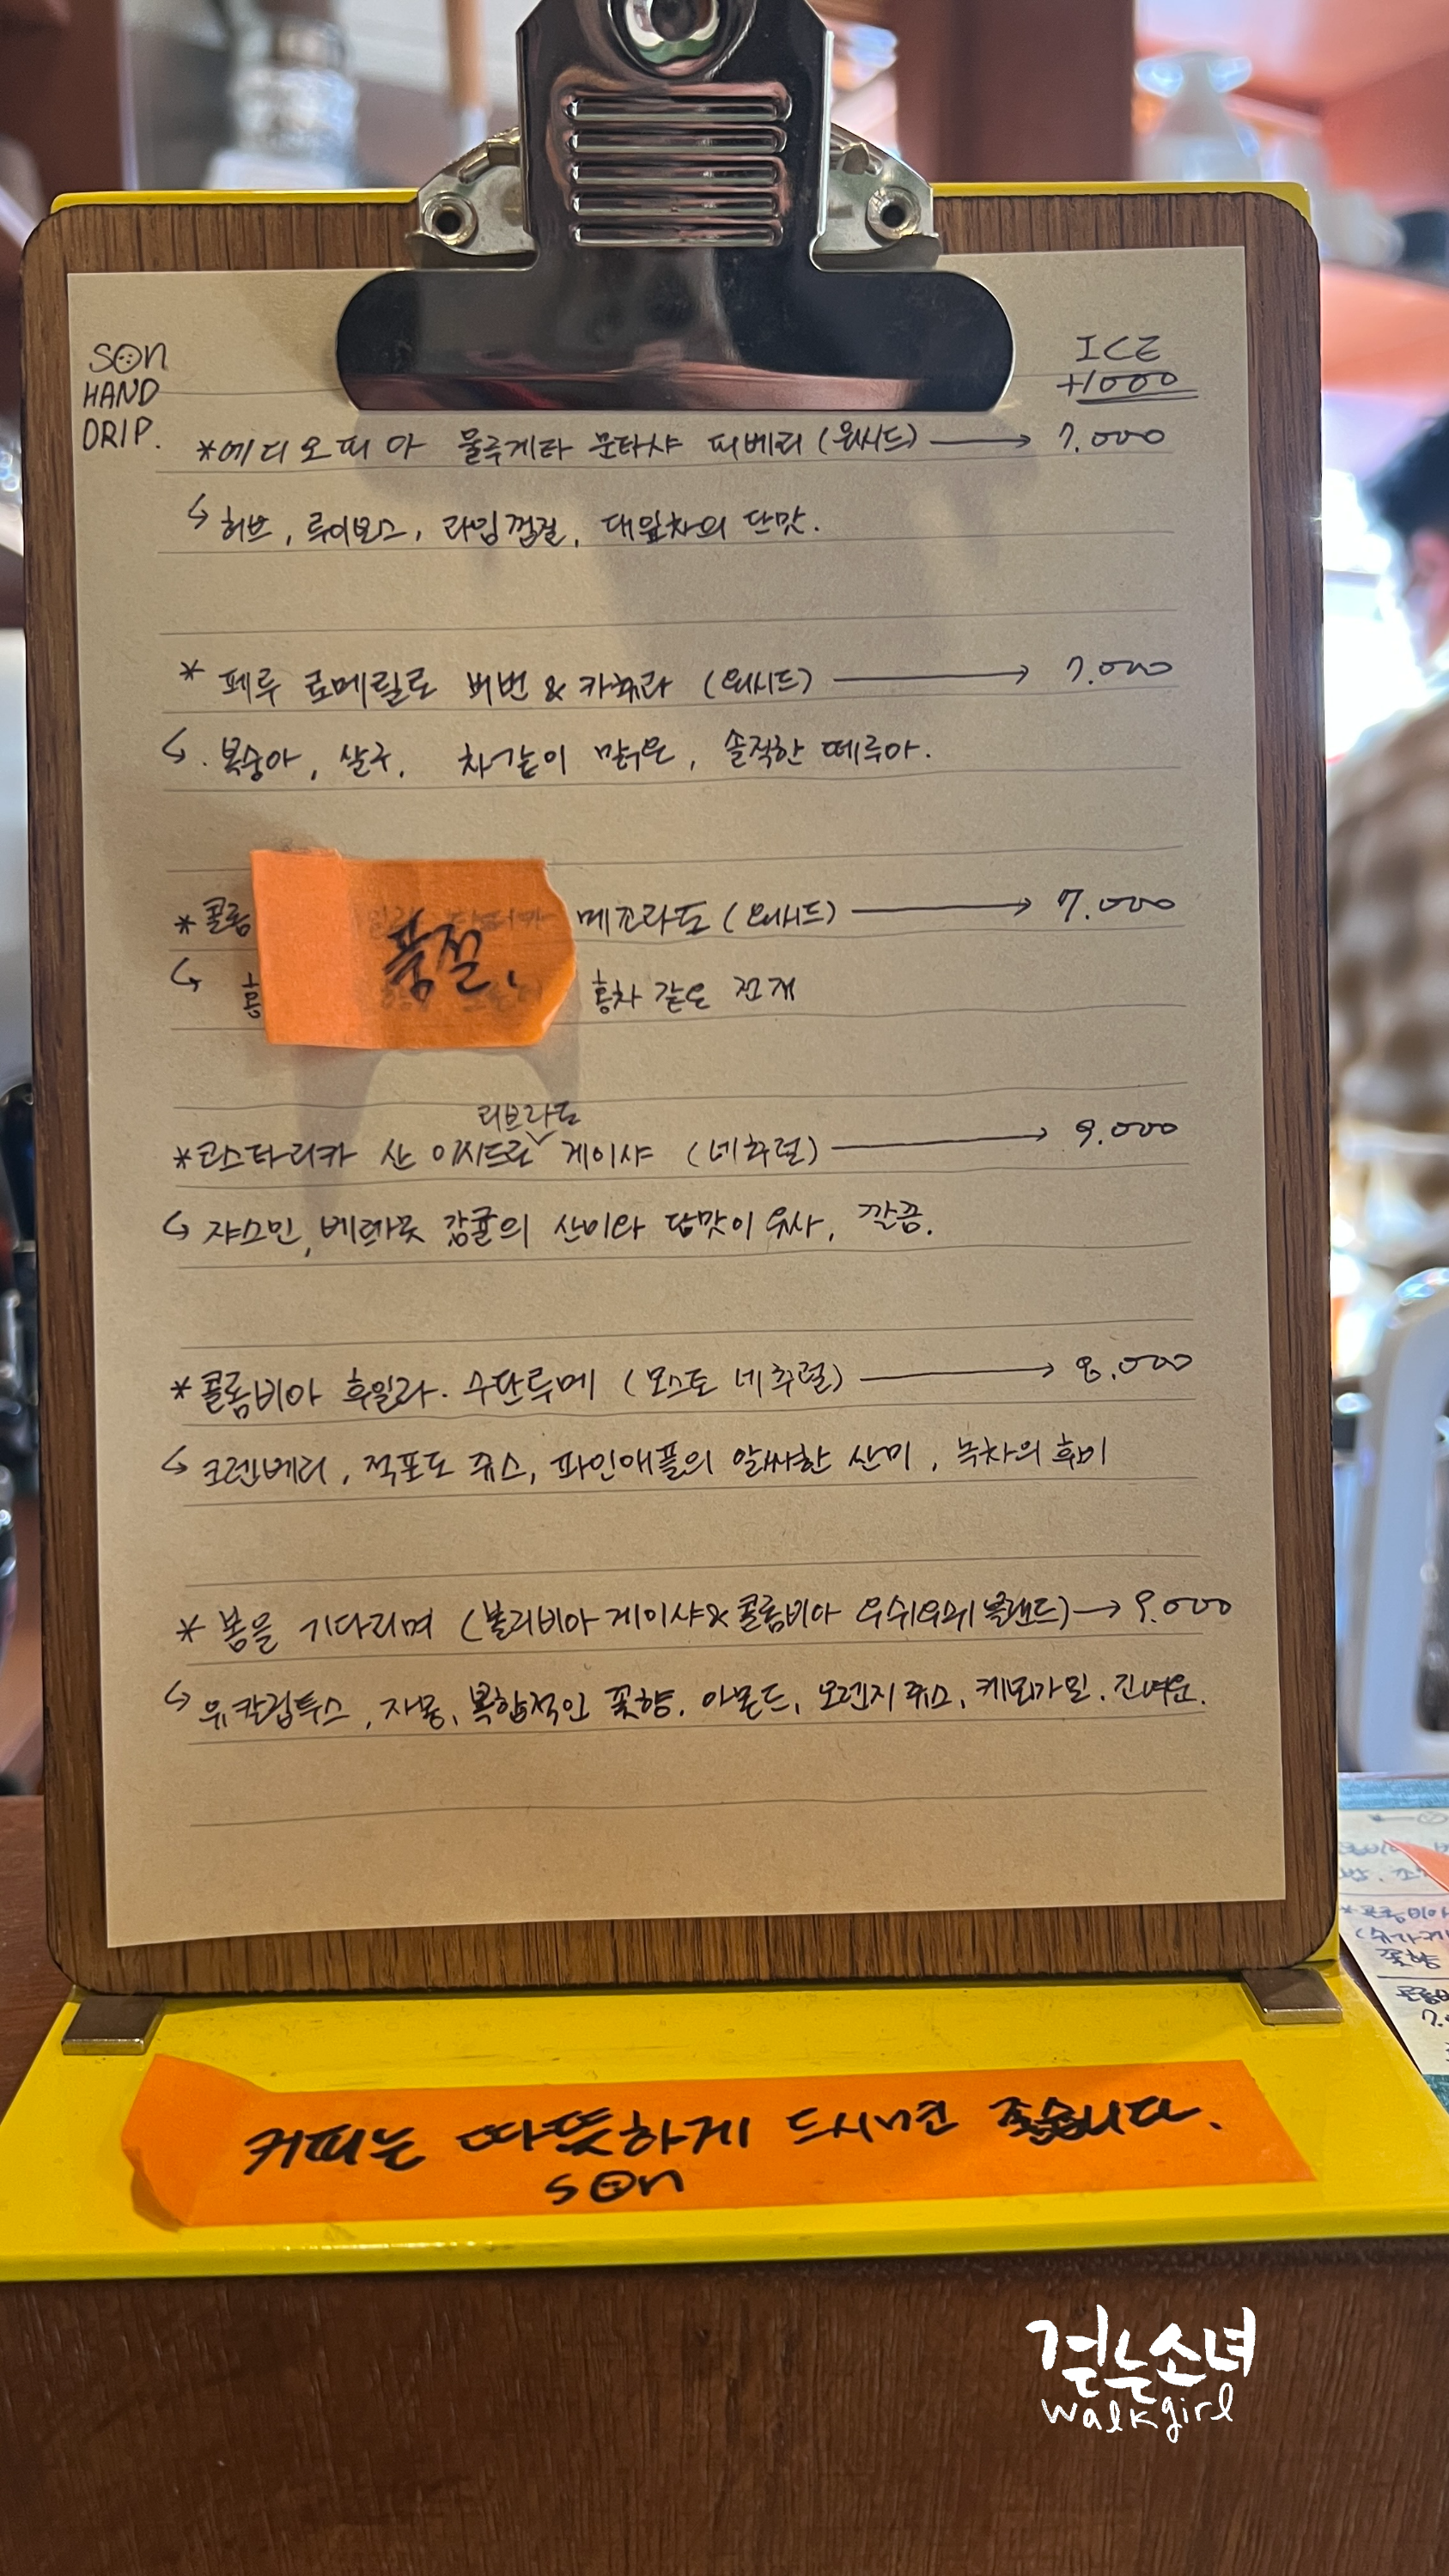 SON
HAND
DRIP.
ICE
+1000
*에디오피아 물루게타 문타샤 피베리 (워시드) → 7.000
↳ 허브, 루이보스, 라임껍질, 대잎차의 단맛.
* 페루 로메릴로 버번 & 카투라 (워시드) → 7.000
↳. 복숭아, 살구, 차같이 맑은, 솔직한 떼루아.
*콜롬 메조라도 (워시드) → 7.000
품절.
↳ 홍차 같은 전개
리브라도
*코스타리카 산 이시드로 게이샤 (네추럴) → 9.000
↳ 쟈스민, 베르가못 감귤의 산미와 단맛이 유사, 깔끔.
*콜롬비아 후일라. 수단루메 (모스토 네추럴) → 8.000
↳ 크렌베리, 적포도 쥬스, 파인애플의 알싸한 산미, 녹차의 후미
* 봄을 기다리며 (볼리비아 게이샤 & 콜롬비아 우쉬우쉬 블렌드) → 9.000
↳ 유칼립투스, 자몽, 복합적인 꽃향, 아몬드, 오렌지쥬스, 케모마일. 긴여운.
커피는 따뜻하게 드시면 좋습니다.
son
걷는소녀
walkgirl